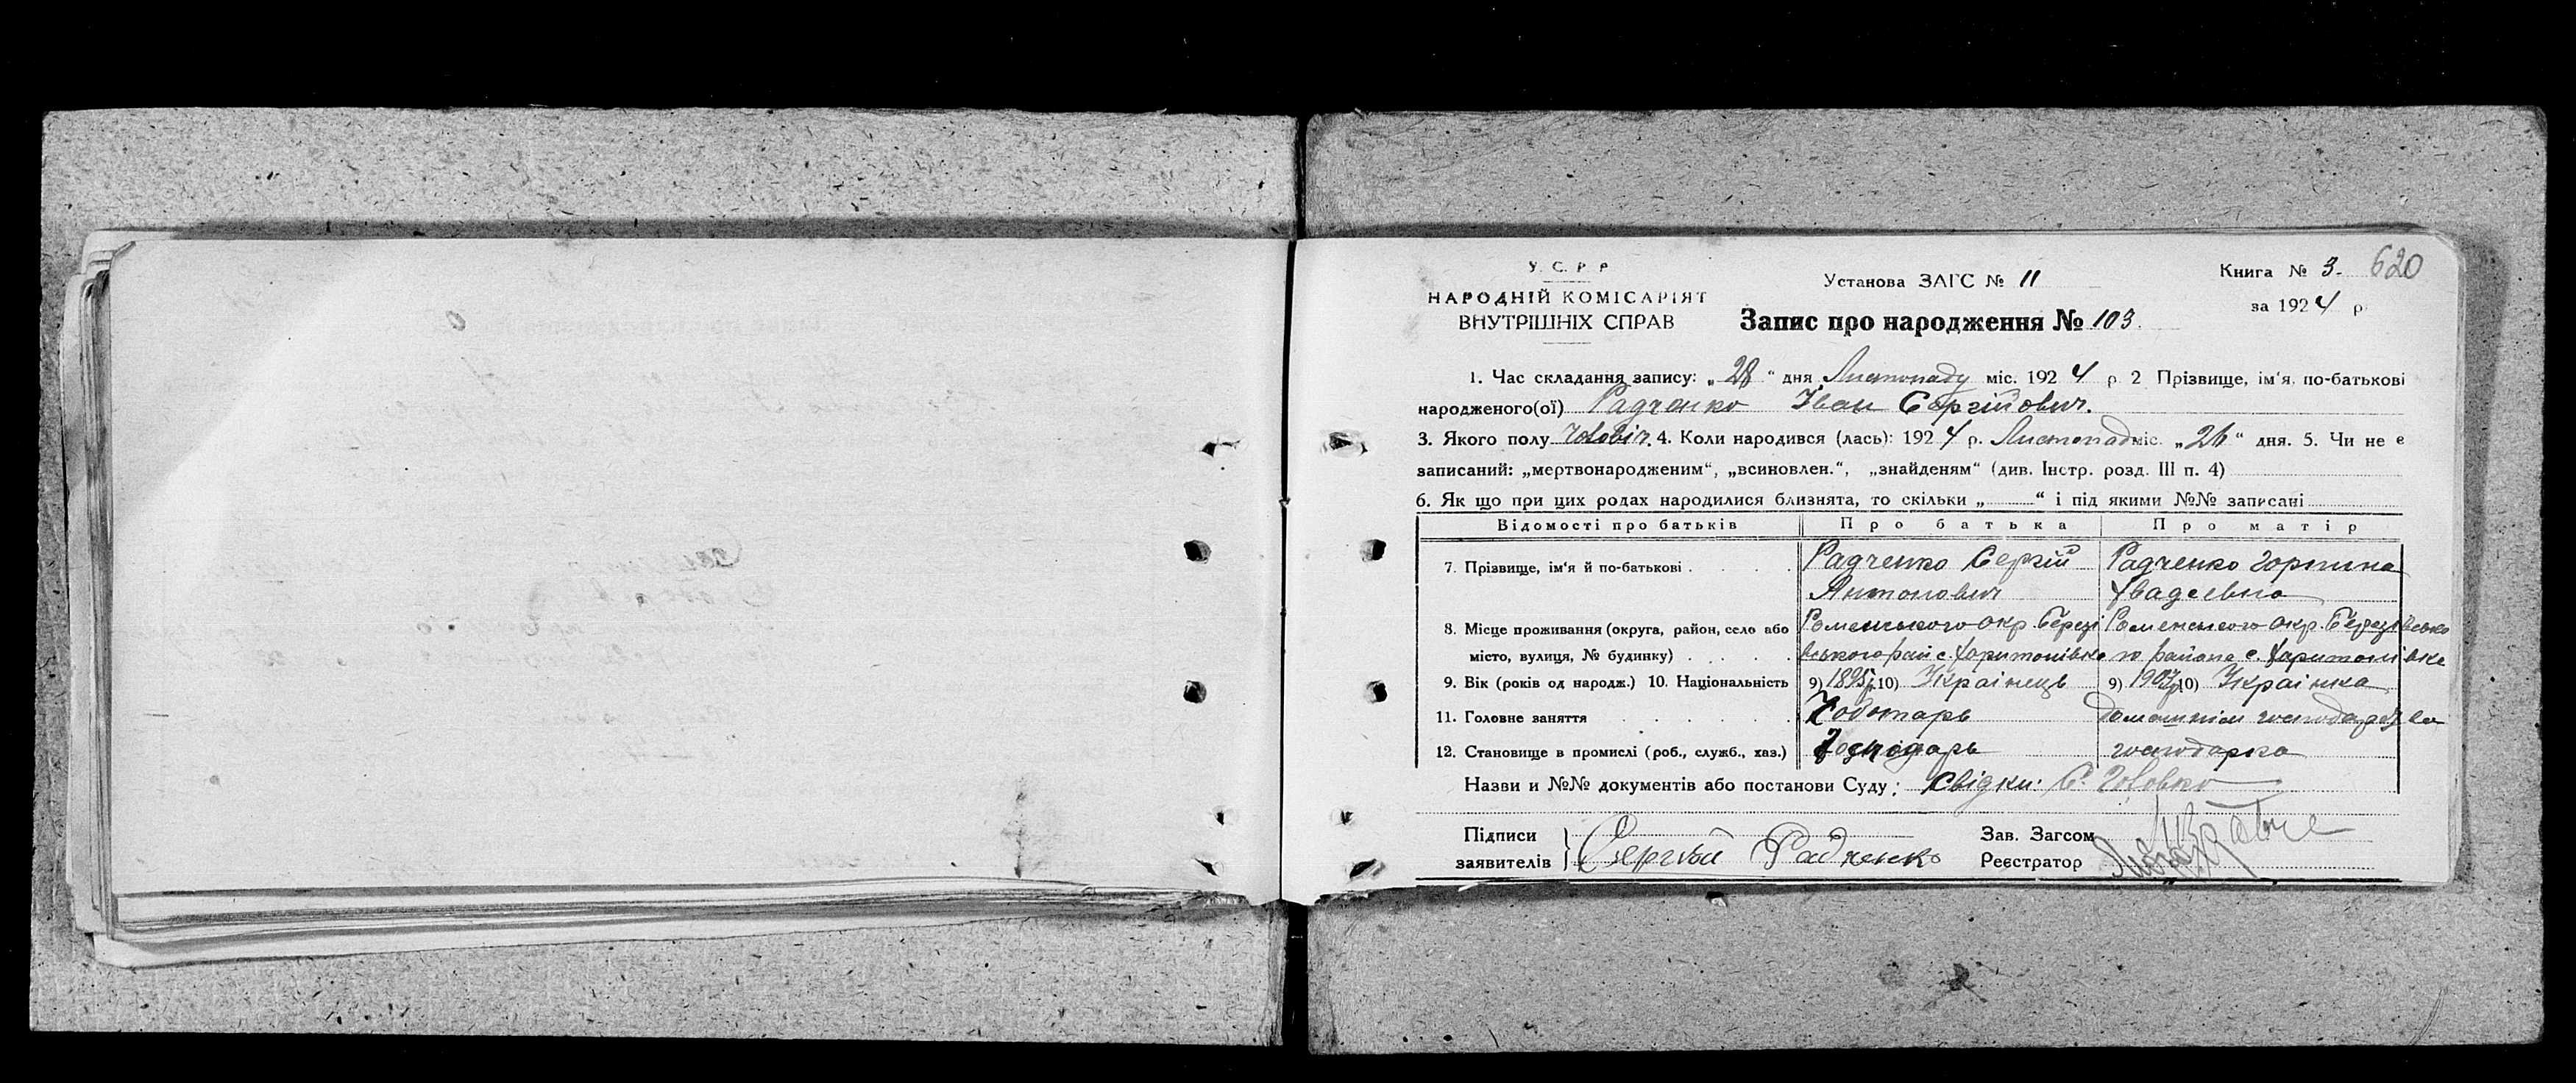 У. С. Р. Р.
НАРОДНІЙ КОМІСАРІЯТ
ВНУТРІШНІХ СПРАВ
Установа ЗАГС № 11
Запис про народження № 103.
Книга № 3. 620
за 1924 р
1. Час складання запису: „28“ дня Листопаду міс. 1924 р 2 Прізвище, ім'я, по-батькові
народженого(ої) Радченко Іван Сергійович.
3. Якого полу чоловіч. 4. Коли народився (лась): 1924 р. Листопад міс. „26“ дня. 5. Чи не є
записаний: „мертвонародженим“, „всиновлен.“, „знайденям“ (див. Інстр. розд. III п. 4)
6. Як що при цих родах народилися близнята, то скільки „ “ і під якими №№ записані
Відомості про батьків Про батька Про матір
7. Прізвище, ім'я й по-батькові Радченко Сергій Радченко Горпина
Антонович Хвадеевна
8. Місце проживання (округа, район, село або Роменського окр. Березі Роменського окр. Березівсько
місто, вулиця, № будинку) вського рай с. Харитонівка го района с. Харитонівка
9. Вік (років од народж.) 10. Національність 9) 1895р. 10) Українець 9) 1902р 10) Українка
11. Головне заняття Чоботарь домашнім
12. Становище в промислі (роб., служб., хаз.) Господарь господарка
Назви и №№ документів або постанови Суду: Свідки: Головко
Підписи
заявителів Сергъй Радченко
Зав. Загсом
Реєстратор